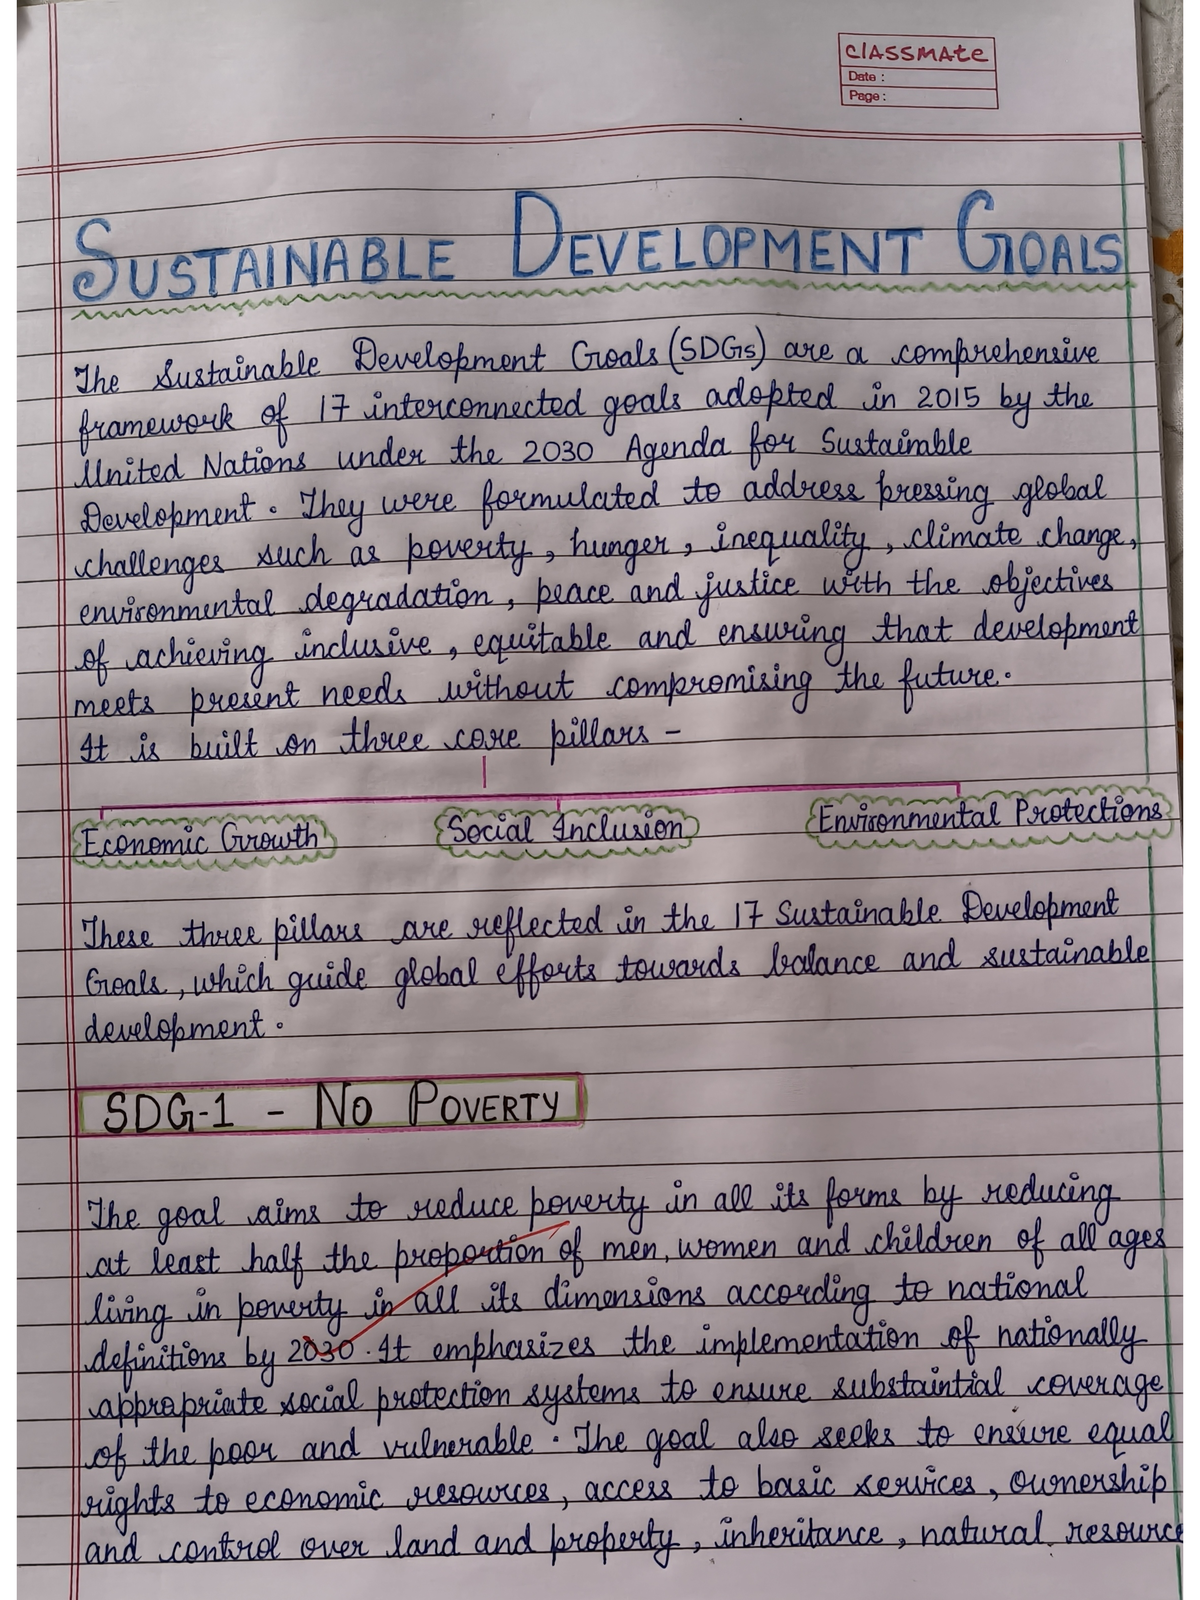 CLASSMATE
Date :
Page :
SUSTAINABLE DEVELOPMENT GOALS
The Sustainable Development Goals (SDGs) are a comprehensive
framework of 17 interconnected goals adopted in 2015 by the
United Nations under the 2030 Agenda for Sustainable
Development. They were formulated to address pressing global
challenges such as poverty, hunger, inequality, climate change,
environmental degradation, peace and justice with the objectives
of achieving inclusive, equitable and ensuring that development
meets present needs without compromising the future.
It is built on three core pillars -
Economic Growth Social Inclusion Environmental Protections
These three pillars are reflected in the 17 Sustainable Development
Goals, which guide global efforts towards balance and sustainable
development.
SDG-1 - NO POVERTY
The goal aims to reduce poverty in all its forms by reducing
at least half the proportion of men, women and children of all ages
living in poverty in all its dimensions according to national
definitions by 2030. It emphasizes the implementation of nationally
appropriate social protection systems to ensure substaintial coverage
of the poor and vulnerable. The goal also seeks to ensure equal
rights to economic resources, access to basic services, ownership
and control over land and property, inheritance, natural resource